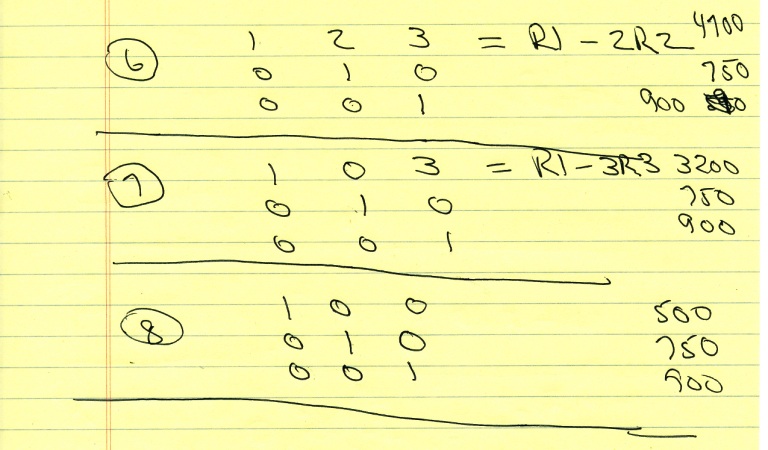 6 1 2 3 = R1 - 2R2 4700
0 1 0 750
0 0 1 900
7 1 0 3 = R1 - 3R3 3200
0 1 0 750
0 0 1 900
8 1 0 0 500
0 1 0 750
0 0 1 900